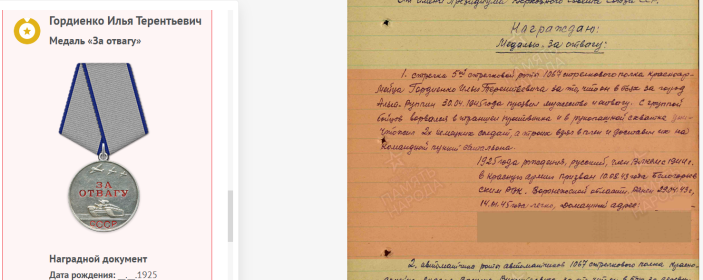 Гордиенко Илья Терентьевич
Медаль «За отвагу»
ЗА
ОТВАГУ
СССР
Наградной документ
Дата рождения: __.__.1925
От имени Президиума Верховного Совета Союза ССР
Награждаю:
Медалью „За отвагу":
1. стрелка 5ой стрелковой роты 1067 стрелкового полка красноар-
мейца Гордиенко Илью Терентьевича за то, что он в боях за город
30.04.1945 года проявил мужество и отвагу. С группой
бойцов ворвался в траншеи противника и в рукопашной схватке
2х немецких солдат, а троих взял в плен и доставил их на
командный пункт батальона.
1925 года рождения, русский, член ВЛКСМ с 1944 г.
в Красную армию призван 10.02.43 года
ским РВК, Воронежской области. Ранен 29.04.43 г,
14.01.45 года - легко, домашний адрес:
2. автоматчика роты автоматчиков 1067 стрелкового полка красно-